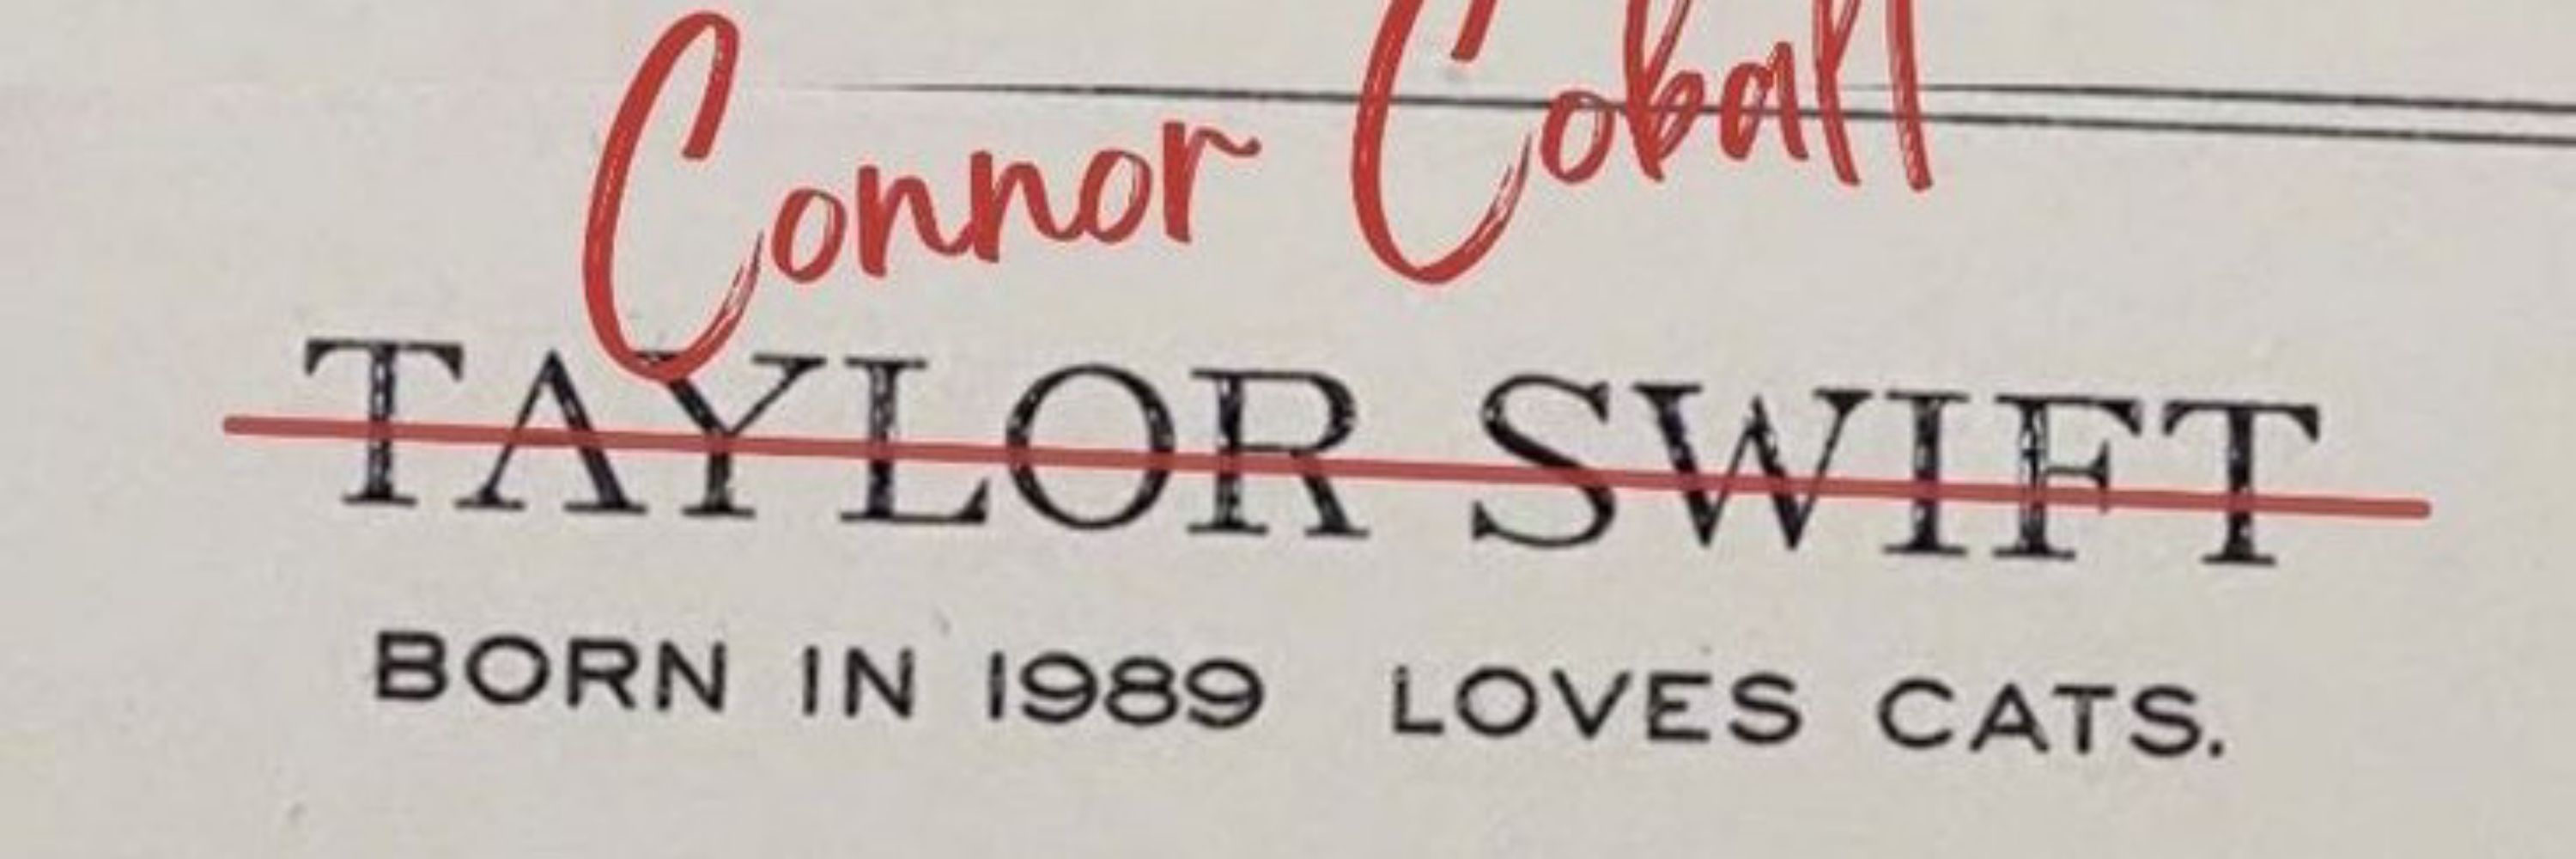 Connor Coball
TAYLOR SWIFT
BORN IN 1989 LOVES CATS.